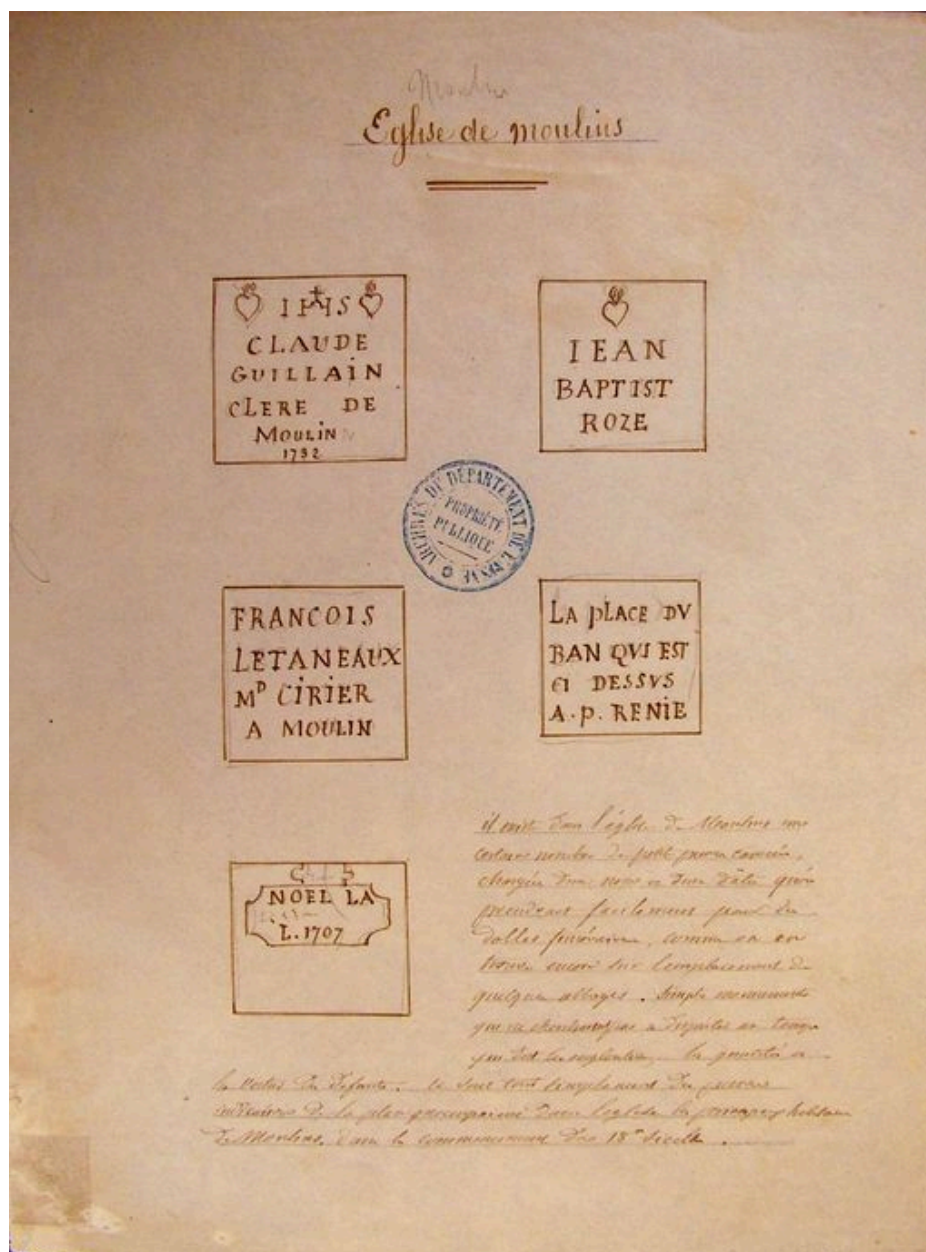 Moulin
Eglise de moulins
IHS
CLAUDE
GUILLAIN
CLERE DE
MOULIN
1732
IEAN
BAPTIST
ROZE
ARCHIVES DU DÉPARTEMENT DE L'AISNE
PROPRIÉTÉ
PUBLIQUE
FRANCOIS
LETANEAUX
Mᴰ CIRIER
A MOULIN
LA PLACE DV
BAN QVI EST
CI DESSVS
A.P. RENIE
NOEL LA
L. 1707
il existe dans l'église de Moulins une
certain nombre de petit pierres carrées,
chargées d'un nom et d'une date qu'on
prendrait facilement pour des
dalles funéraires, comme on en
trouve encore sur l'emplacement de
quelques abbayes. Simple monuments
que se a disputer au temps
qui les la et
la vertus des défunts. ce sont tout simplement des pierres
de la place dans l'église les
de Moulins, dans le commencement du 18e siècle.